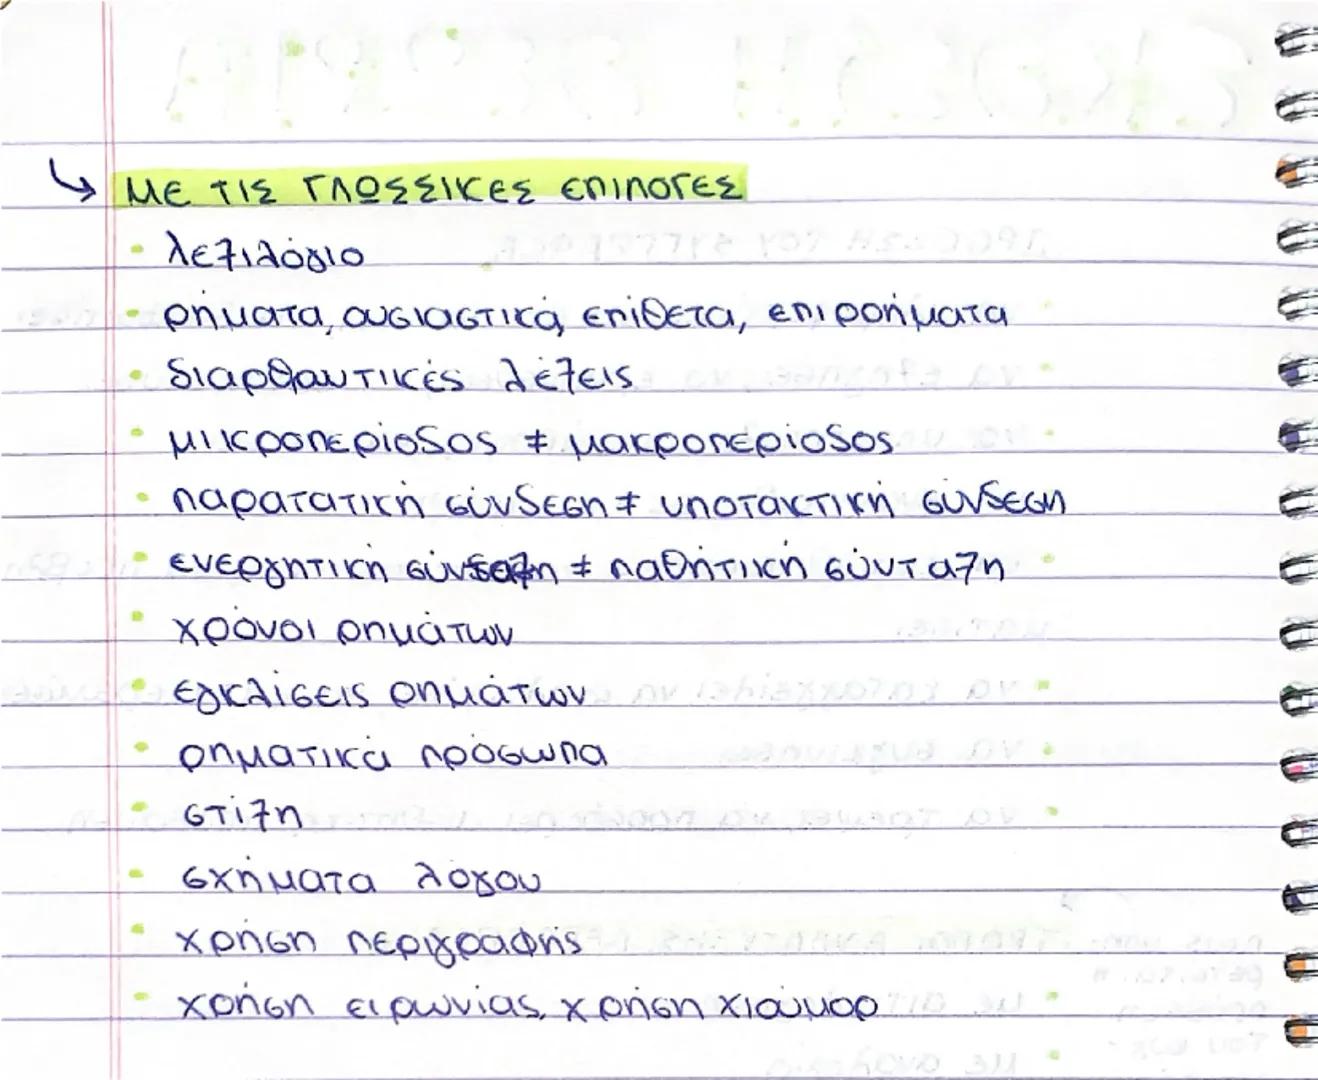 ↳ ΜΕ ΤΙΣ ΓΛΩΣΣΙΚΕΣ ΕΠΙΛΟΓΕΣ
• λεξιλόγιο
• ρήματα, ουσιαστικά, επίθετα, επιρρήματα
• διαρθρωτικές λέξεις
• μικροπερίοδος ≠ μακροπερίοδος
• παρατατική σύνδεση ≠ υποτακτική σύνδεση
• ενεργητική σύνταξη ≠ παθητική σύνταξη
• χρόνοι ρημάτων
• εγκλίσεις ρημάτων
• ρηματικά πρόσωπα
• στίξη
• σχήματα λόγου
• χρήση περιγραφής
• χρήση ειρωνίας, χρήση χιούμορ